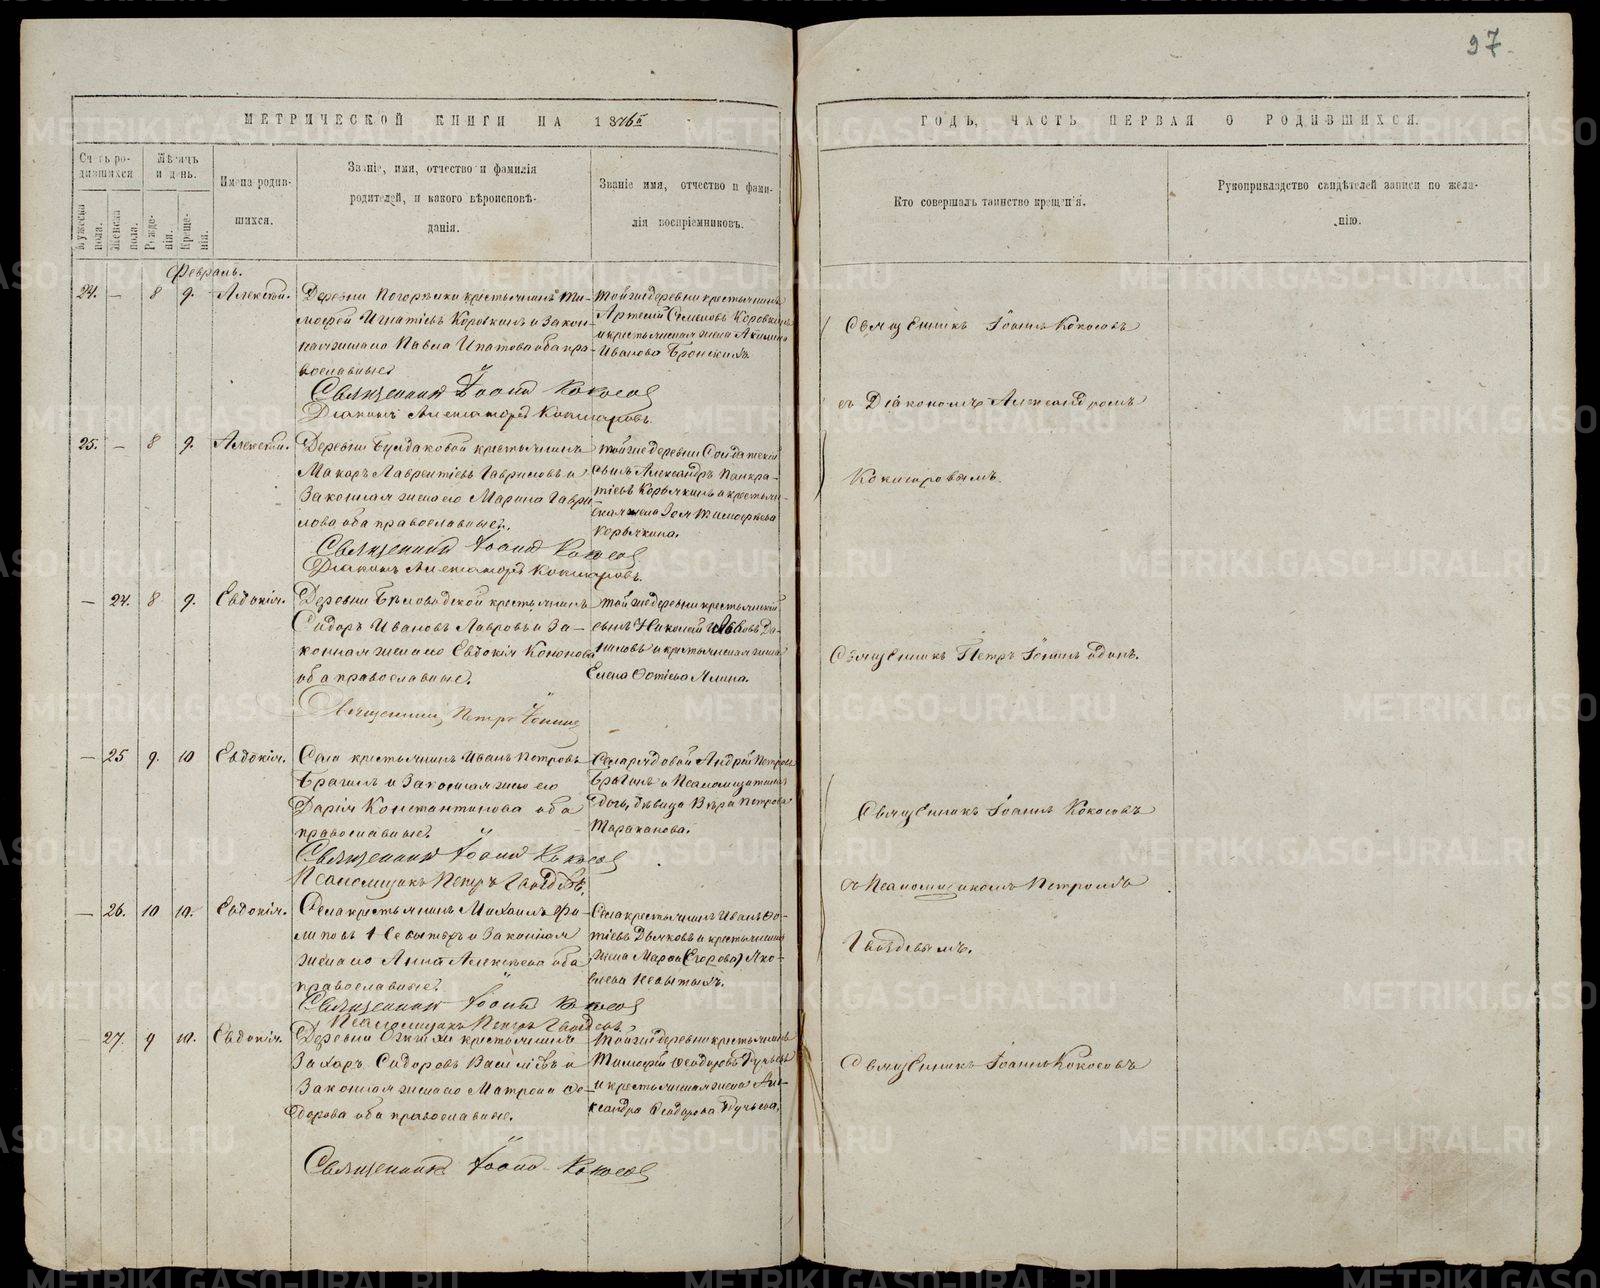 97.
МЕТРИЧЕСКОЙ КНИГИ НА 1876й
ГОДЪ, ЧАСТЬ ПЕРВАЯ О РОДИВШИХСЯ.
Счетъ родившихся
Мужеска пола.
Женска пола.
Мѣсяцъ и день.
Рожденія.
Крещенія.
Имена родившихся.
Званіе, имя, отчество и фамилія
родителей, и какого вѣроисповѣ-
данія.
Званіе имя, отчество и фами-
лія воспріемниковъ.
Кто совершалъ таинство крещенія.
Рукоприкладство свидѣтелей записи по жела-
нію.
Февраль.
24. — 8 9. Алексѣй.
Деревни крестьянинъ Ти-
мофей Игнатіевъ Коровкинъ и Закон-
ная жена его Павла Ипатова оба пра-
вославные
Священникъ Іоаннъ Кокосовъ
Діаконъ Александръ Кокшаровъ.
той же деревни крестьянинъ
Артемій Семеновъ Коровкинъ
и крестьянская жена
Иванова
Священникъ Іоаннъ Кокосовъ
съ Діакономъ Александромъ
Кокшаровымъ.
25. — 8 9. Алексѣй.
Деревни Булдаковой крестьянинъ
Макаръ Лаврентіевъ Гавриловъ и
Законная жена его Марина Гаври-
лова оба православные.
Священникъ Іоаннъ Кокосовъ
Діаконъ Александръ Кокшаровъ.
той же деревни Солдатскій
сынъ Александръ Панкра-
тіевъ Корякинъ и крестьян-
ская жена Тимофеева
Корякина.
— 24. 8 9. Евдокія.
Деревни крестьянинъ
Сидоръ Ивановъ Лавровъ и За-
конная жена его Евдокія Кононова
оба православные.
Священникъ Петръ
той же деревни крестьянскій
сынъ Николай Да-
ниловъ и крестьянская жена
Елена Фотіева
Священникъ Петръ одинъ.
— 25 9. 10 Евдокія.
Села крестьянинъ Иванъ Петровъ
Брагинъ и Законная жена его
Дарія Константинова оба
православные
Священникъ Іоаннъ Кокосовъ
Псаломщикъ Петръ
Села рядовой Андрей Петровъ
Брагинъ и Псаломщическая
дочь, дѣвица Вѣра Петрова
Тараканова.
Священникъ Іоаннъ Кокосовъ
съ Псаломщикомъ Петромъ
— 26. 10 10. Евдокія.
Села крестьянинъ Михаилъ Фи-
липовъ и Законная
жена его Анна Алексѣева оба
православные
Священникъ Іоаннъ Кокосовъ
Псаломщикъ Петръ
Села крестьянинъ Иванъ Фо-
тіевъ Дьяковъ и крестьянская
жена Марфа (Егорова) Яко-
влева
— 27. 9 10. Евдокія.
Деревни крестьянинъ
Захаръ Сидоровъ Васильевъ и
Законная жена его Матрона Фе-
дорова оба православные.
Священникъ Іоаннъ Кокосовъ
той же деревни крестьянинъ
Тимофей Феодоровъ
и крестьянская жена Але-
ксандра Феодорова
Священникъ Іоаннъ Кокосовъ
METRIKI.GASO-URAL.RU